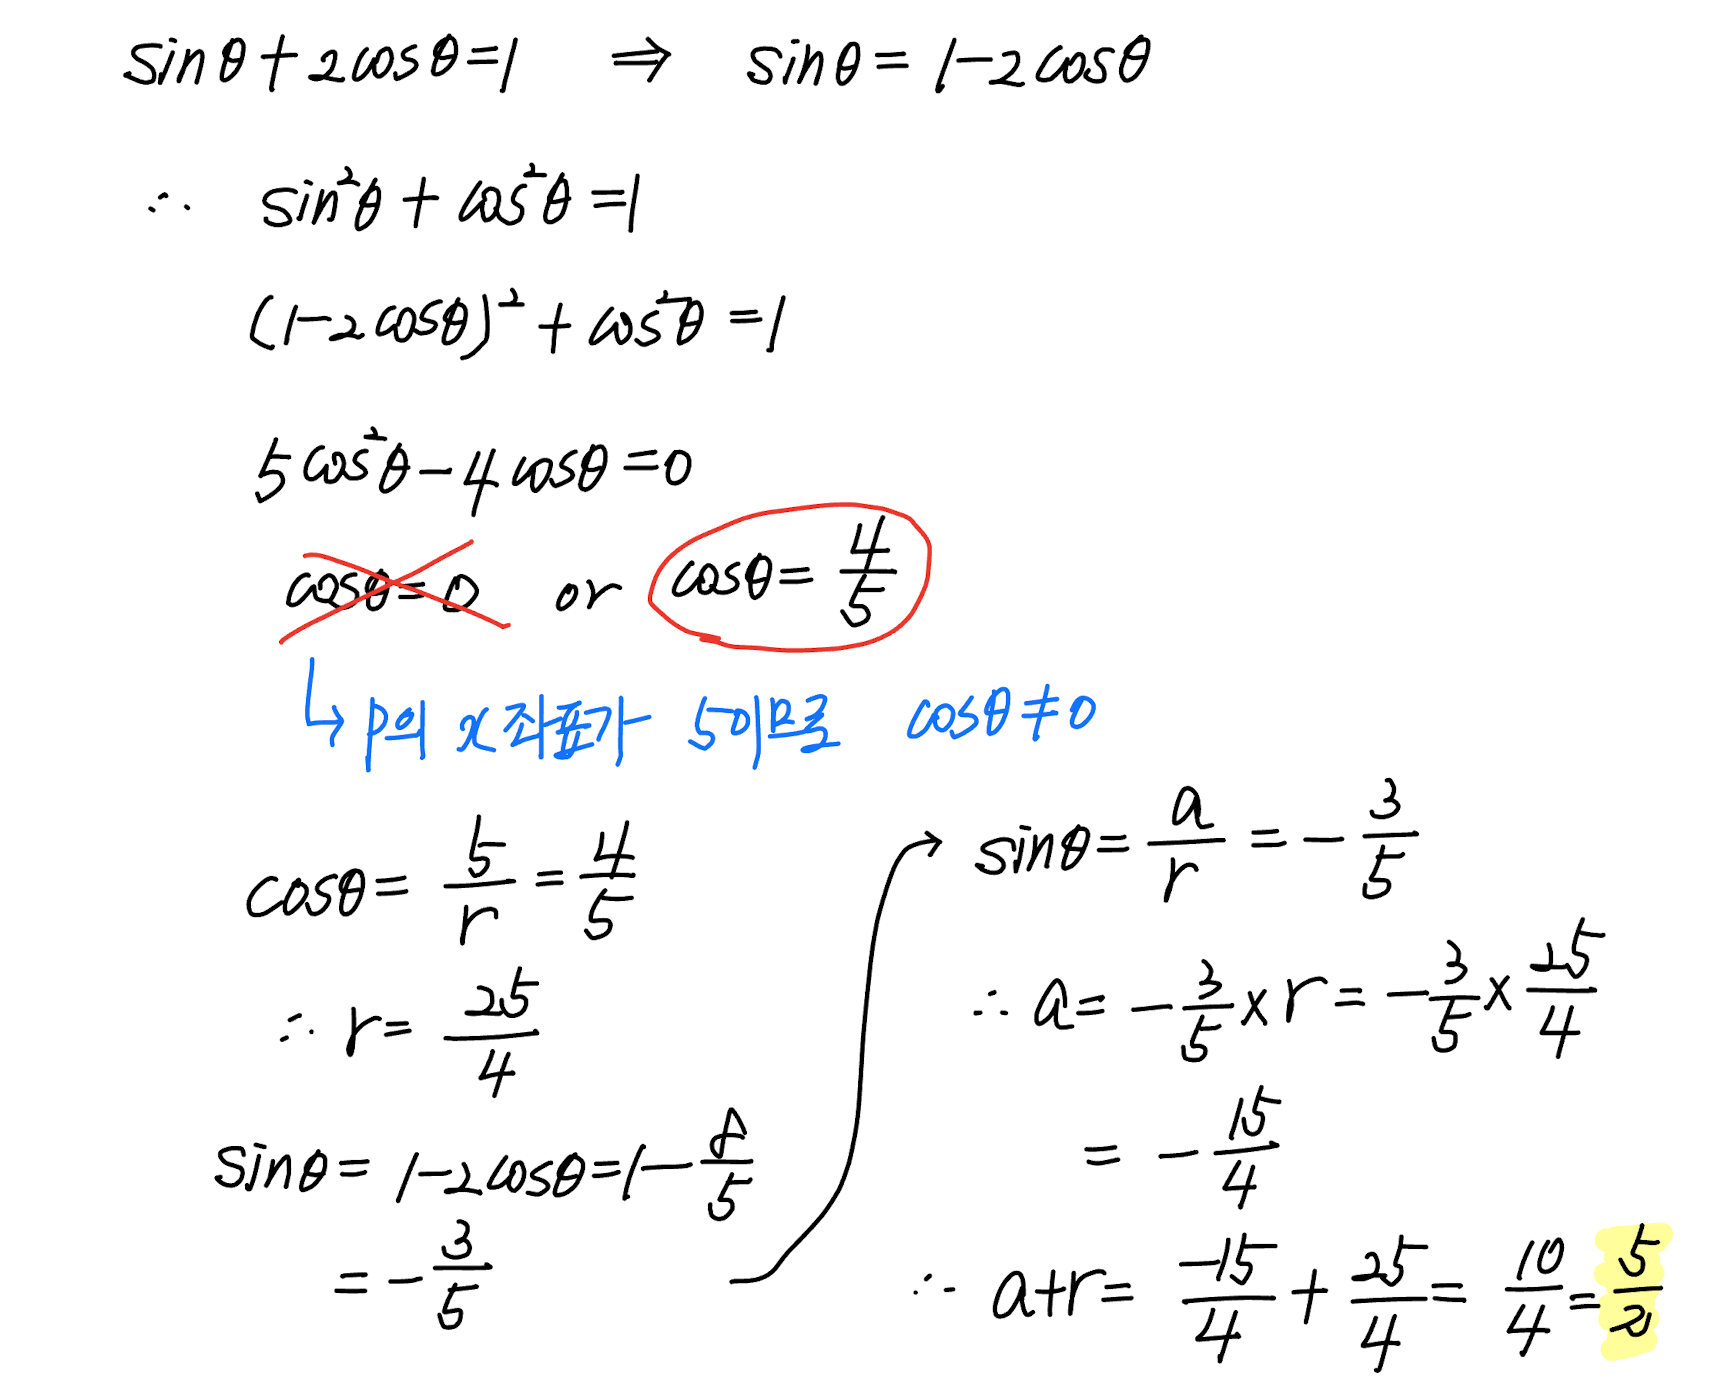 sinθ + 2cosθ = 1 ⇒ sinθ = 1 - 2cosθ
∴ sin²θ + cos²θ = 1
(1 - 2cosθ)² + cos²θ = 1
5cos²θ - 4cosθ = 0
cosθ = 0 or cosθ = 4/5
↳ P의 x좌표가 5이므로 cosθ ≠ 0
cosθ = 5/r = 4/5
∴ r = 25/4
sinθ = 1 - 2cosθ = 1 - 8/5
= - 3/5
→ sinθ = a/r = - 3/5
∴ a = - 3/5 × r = - 3/5 × 25/4
= - 15/4
∴ a+r = -15/4 + 25/4 = 10/4 = 5/2